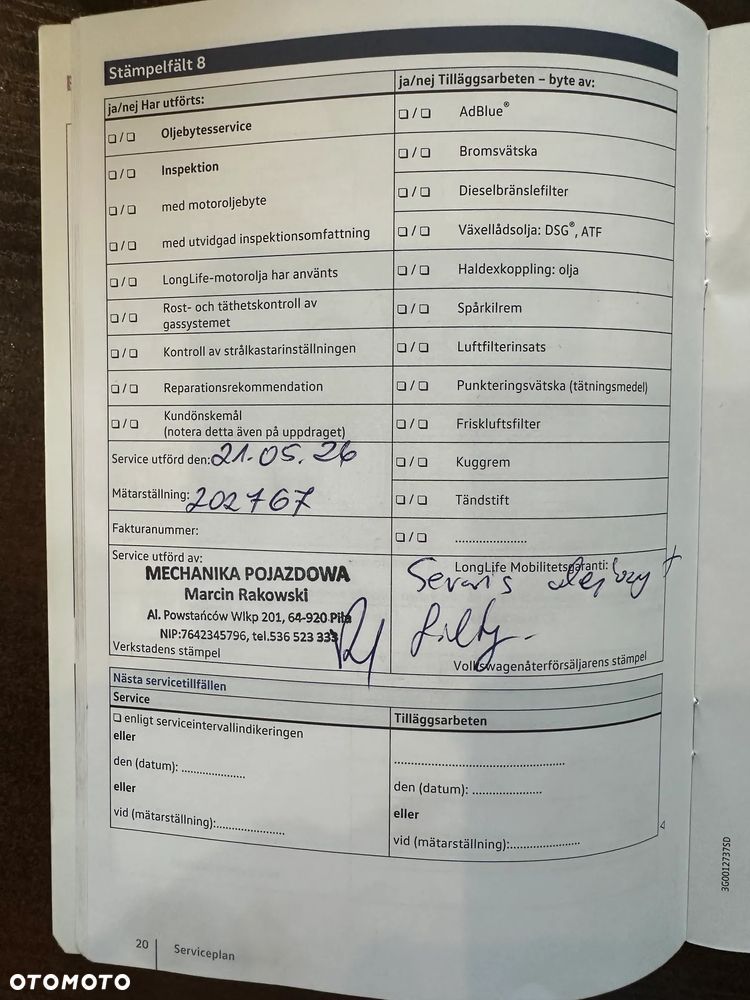 Stämpelfält 8
ja/nej Har utförts:
❏ / ❏ Oljebytesservice
❏ / ❏ Inspektion
❏ / ❏ med motoroljebyte
❏ / ❏ med utvidgad inspektionsomfattning
❏ / ❏ LongLife-motorolja har använts
❏ / ❏ Rost- och täthetskontroll av
gassystemet
❏ / ❏ Kontroll av strålkastarinställningen
❏ / ❏ Reparationsrekommendation
❏ / ❏ Kundönskemål
(notera detta även på uppdraget)
Service utförd den: 21.05.26
Mätarställning: 202767
Fakturanummer:
Service utförd av:
MECHANIKA POJAZDOWA
Marcin Rakowski
Al. Powstańców Wlkp 201, 64-920 Piła
NIP:7642345796, tel.536 523 333
Verkstadens stämpel
ja/nej Tilläggsarbeten – byte av:
❏ / ❏ AdBlue®
❏ / ❏ Bromsvätska
❏ / ❏ Dieselbränslefilter
❏ / ❏ Växellådsolja: DSG®, ATF
❏ / ❏ Haldexkoppling: olja
❏ / ❏ Spårkilrem
❏ / ❏ Luftfilterinsats
❏ / ❏ Punkteringsvätska (tätningsmedel)
❏ / ❏ Friskluftsfilter
❏ / ❏ Kuggrem
❏ / ❏ Tändstift
❏ / ❏ ......................
LongLife Mobilitetsgaranti:
Serwis olejowy +
filtry.
Volkswagenåterförsäljarens stämpel
Nästa servicetillfällen
Service
❏ enligt serviceintervallindikeringen
eller
den (datum): ....................
eller
vid (mätarställning):......................
Tilläggsarbeten
......................................................
den (datum): ......................
eller
vid (mätarställning):......................
20 Serviceplan
3G0012737SD
OTOMOTO